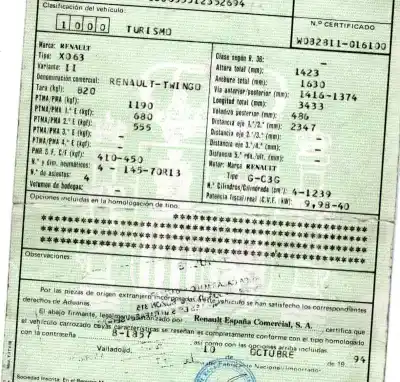 Clasificación del vehículo:
1 0 0 0 TURISMO
N.º CERTIFICADO
W082811-016100
Marca: RENAULT
Tipo: X063
Variante: II
Denominación comercial: RENAULT-TWINGO
Tara (kgf): 820
PTMA/PMA (kgf): 1190
PTMA/PMA 1.º E (kgf): 680
PTMA/PMA 2.º E (kgf): 555
PTMA/PMA 3.º E (kgf): -
PTMA/PMA 4.º E (kgf): -
PMR S.F, C/F (kgf): 410-450
N.º y dim. neumáticos: 4 - 145-70R13
N.º de asientos: 4
Volumen de bodegas:
Clase según R. 36: -
Altura total (mm): 1423
Anchura total (mm): 1630
Vía anterior/posterior (mm): 1416-1374
Longitud total (mm): 3433
Voladizo posterior (mm): 486
Distancia eje 1.º/2.º (mm): 2347
Distancia eje 2.º/3.º (mm): -
Distancia eje 3.º/4.º (mm): -
Distancia 5.ª rda./últ. (mm): -
Motor: Marca RENAULT
Tipo G-C3G
N.º Cilindros/Cilindrada (cm³): 4-1239
Potencia fiscal/real (C.V.F./kW): 9,98-40
Opciones incluidas en la homologación de tipo:
Observaciones:
Por las piezas de origen extranjero incorporadas el vehículo se han satisfecho los correspondientes
derechos de Aduanas.
El abajo firmante, legalmente autorizado por Renault España Comercial, S. A., certifica que
el vehículo carrozado cuyas características se reseñan es completamente conforme con el tipo homologado
con la contraseña B-1837 así como con las opciones arriba incluidas.
Valladolid, 10 OCTUBRE de 19 94
Fabricante Nacional/Importador